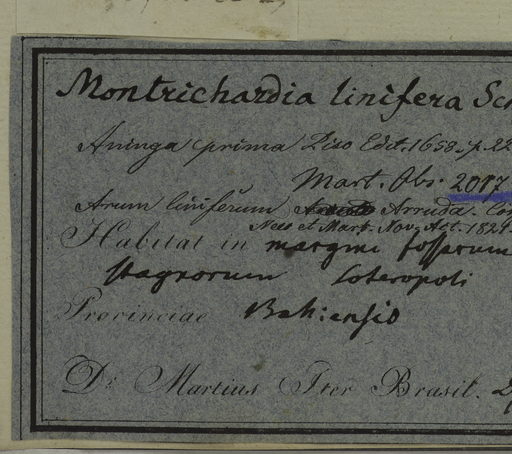 Montrichardia linifera Sch
Aninga prima Piso Edit. 1658. p. 22
Mart. Obs. 2017
Arum liniferum Arruda. Cen
Nees et Mart. Nov. Act. 1824.
Habitat in margine fossarum
stagnorum Soteropoli
Provinciae Bahiensis
Dr. Martius Iter Brasil.